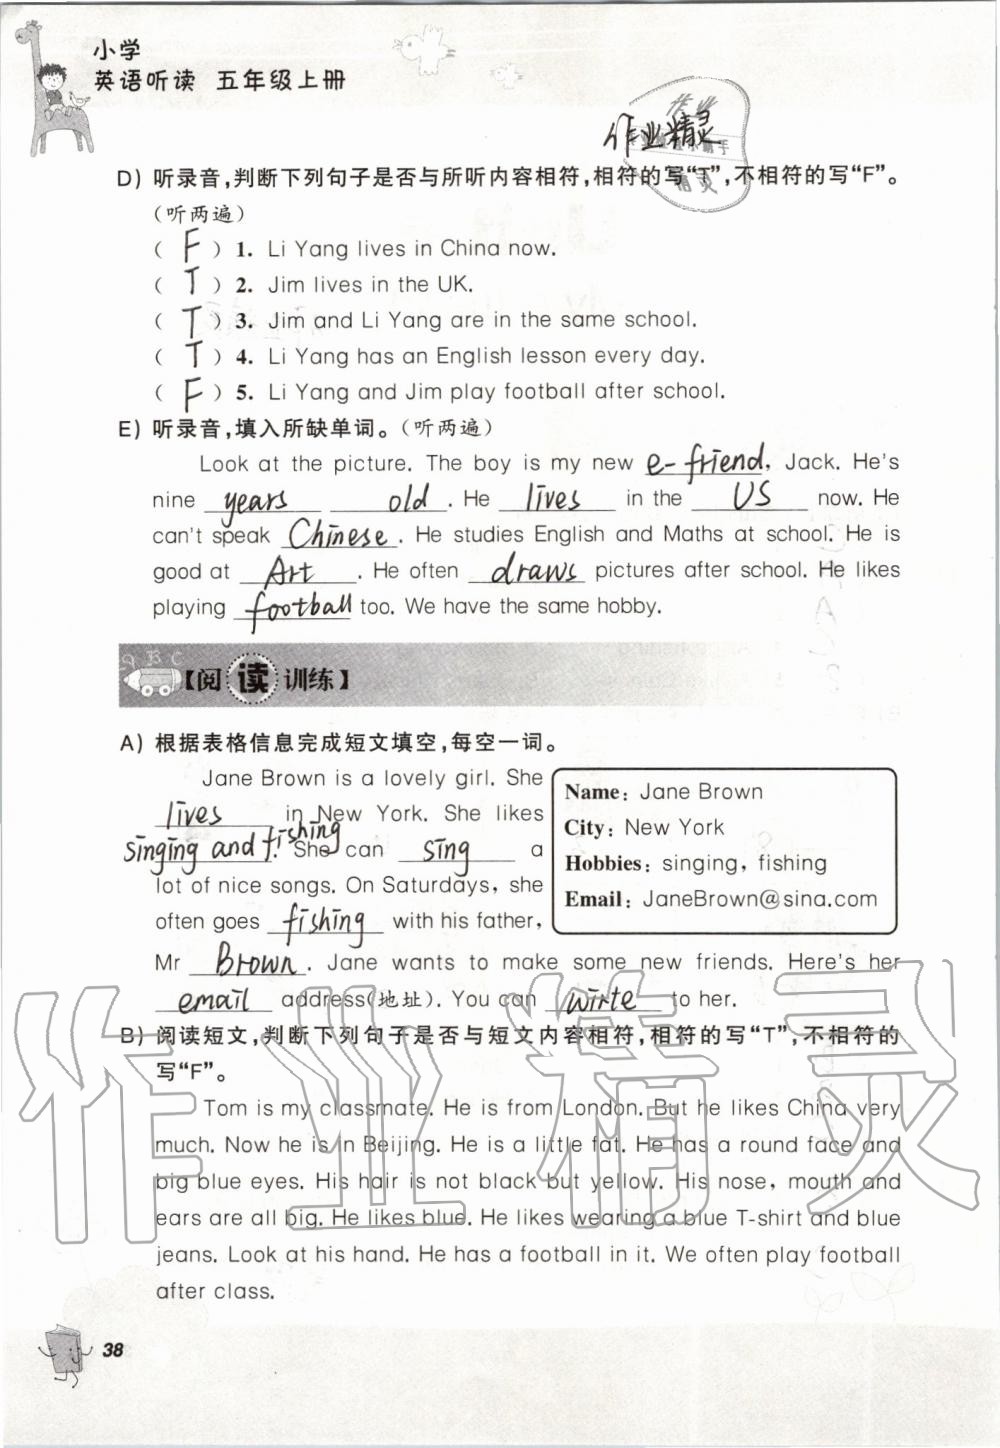 小学
英语听读 五年级上册
作业
作业精灵
精灵
D) 听录音,判断下列句子是否与所听内容相符,相符的写“T”,不相符的写“F”。
(听两遍)
( F ) 1. Li Yang lives in China now.
( T ) 2. Jim lives in the UK.
( T ) 3. Jim and Li Yang are in the same school.
( T ) 4. Li Yang has an English lesson every day.
( F ) 5. Li Yang and Jim play football after school.
E) 听录音,填入所缺单词。(听两遍)
Look at the picture. The boy is my new e-friend, Jack. He's
nine years old. He lives in the US now. He
can't speak Chinese. He studies English and Maths at school. He is
good at Art. He often draws pictures after school. He likes
playing football too. We have the same hobby.
ABC
【阅读训练】
A) 根据表格信息完成短文填空,每空一词。
Jane Brown is a lovely girl. She
lives in New York. She likes
singing and fishing. She can sing a
lot of nice songs. On Saturdays, she
often goes fishing with his father,
Name: Jane Brown
City: New York
Hobbies: singing, fishing
Email: JaneBrown@sina.com
Mr Brown. Jane wants to make some new friends. Here's her
email address(地址). You can wirte to her.
B) 阅读短文,判断下列句子是否与短文内容相符,相符的写“T”,不相符的
写“F”。
Tom is my classmate. He is from London. But he likes China very
much. Now he is in Beijing. He is a little fat. He has a round face and
big blue eyes. His hair is not black but yellow. His nose, mouth and
ears are all big. He likes blue. He likes wearing a blue T-shirt and blue
jeans. Look at his hand. He has a football in it. We often play football
after class.
作业精灵
38